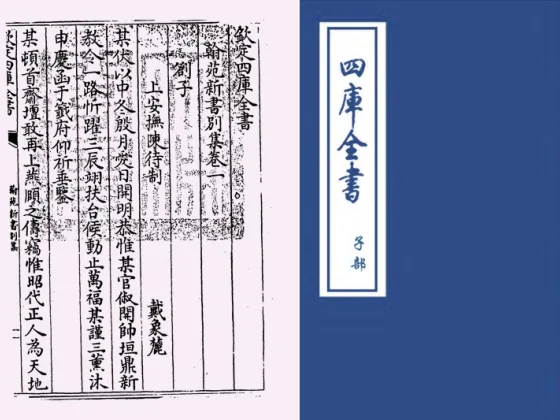 欽定四庫全書
翰苑新書别集卷一
劄子
上安撫陳待制 戴象麓
某伏以中冬殷月爰日開明恭惟某官俶開帥垣鼎新
教令一路忻躍三辰翊扶台候動止萬福某謹三薰沐
申慶函于籤府仰祈垂鑒
某頓首齋壇敢再上燕頤之儔竊惟昭代正人為天地
欽定四庫全書
翰苑新書别集
四庫全書
子部